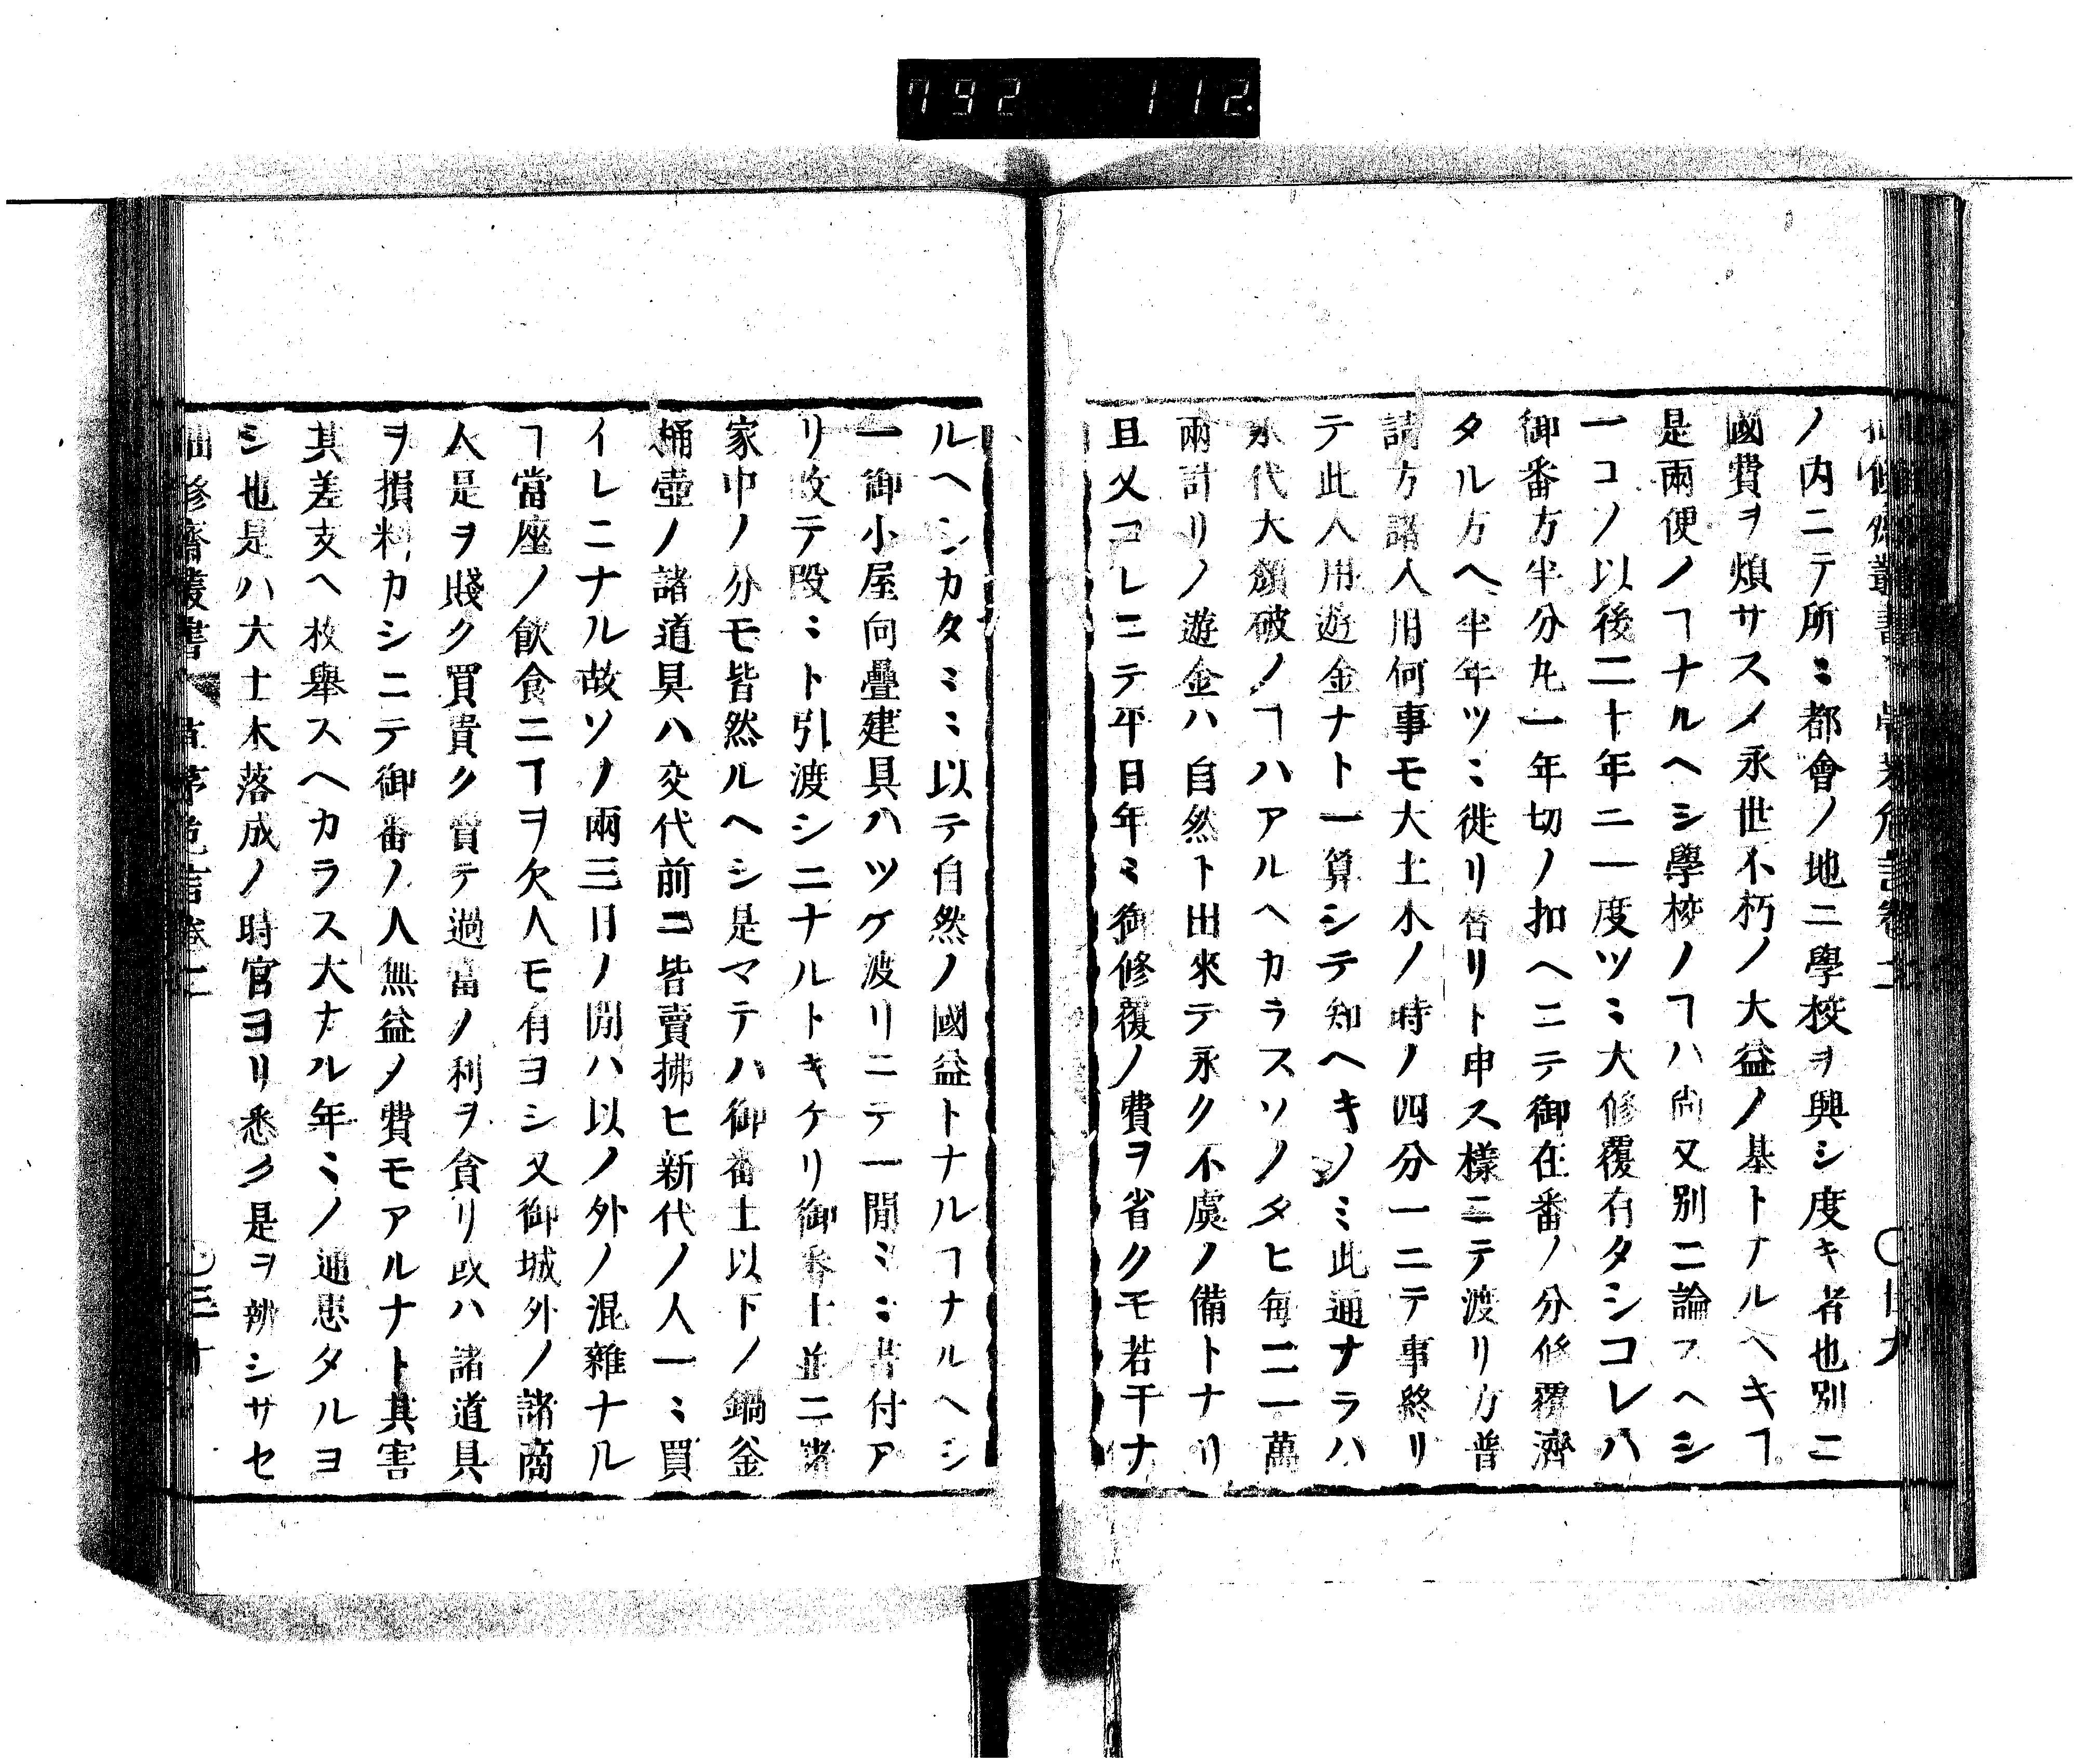 792 112
ノ内ニテ所ミ都會ノ地ニ學校ヲ興シ度キ者也別ニ
國費ヲ煩サスメ永世不朽ノ大益ノ基トナルヘキヿ
是兩便ノヿナルヘシ學校ノヿハ尚又別ニ論スヘシ
一コノ以後二十年ニ一度ツミ大修覆有タシコレハ
御番方半分充一年切ノ扣ヘニテ御在番ノ分修覆濟
タル方ヘ半年ツミ徙リ替リト申ス樣ニテ渡リ方普
請方諸入用何事モ大土木ノ時ノ四分一ニテ事終リ
テ此入用遊金ナト一算シテ知ヘキノミ此通ナラハ
永代大頽破ノヿハアルヘカラスソノタヒ毎ニ一萬
兩計リノ遊金ハ自然ト出來テ永ク不虞ノ備トナリ
且又コレニテ平日年ミ御修覆ノ費ヲ省クモ若干ナ
ルヘシカタミミ以テ自然ノ國益トナルヿナルヘシ
一御小屋向疊建具ハツケ渡リニテ一間ミミ書付ア
リ改テ段ミト引渡シニナルトキケリ御番士並ニ諸
家中ノ分モ皆然ルヘシ是マテハ御番士以下ノ鍋釜
桶壺ノ諸道具ハ交代前ニ皆賣拂ヒ新代ノ人一ミ買
イレニナル故ソノ兩三日ノ間ハ以ノ外ノ混雜ナル
ヿ當座ノ飮食ニヿヲ欠人モ有ヨシ又御城外ノ諸商
人是ヲ賤ク買貴ク賣テ過當ノ利ヲ貪リ或ハ諸道具
ヲ損料カシニテ御番ノ人無益ノ費モアルナト其害
其差支ヘ枚舉スヘカラス大ナル年ミノ通患タルヨ
シ也是ハ大土木落成ノ時官ヨリ悉ク是ヲ辨シサセ